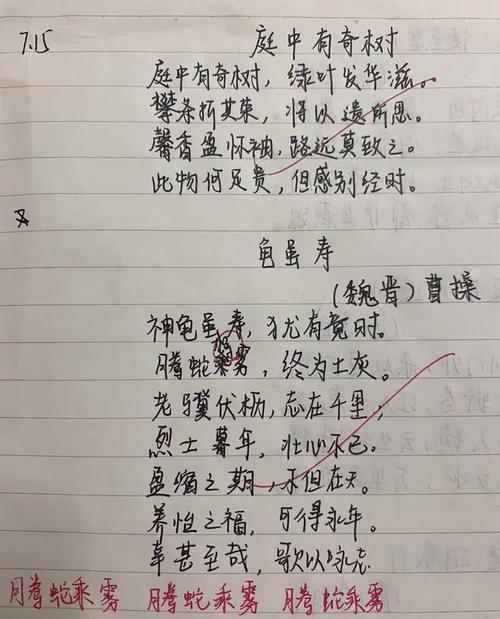 7.15
庭中有奇树
庭中有奇树，绿叶发华滋。
攀条折其荣，将以遗所思。
馨香盈怀袖，路远莫致之。
此物何足贵，但感别经时。
龟虽寿
（魏晋）曹操
神龟虽寿，犹有竟时。
腾蛇乘雾，终为土灰。
老骥伏枥，志在千里；
烈士暮年，壮心不已。
盈缩之期，不但在天。
养怡之福，可得永年。
幸甚至哉，歌以咏志
腾蛇乘雾 腾蛇乘雾 腾蛇乘雾